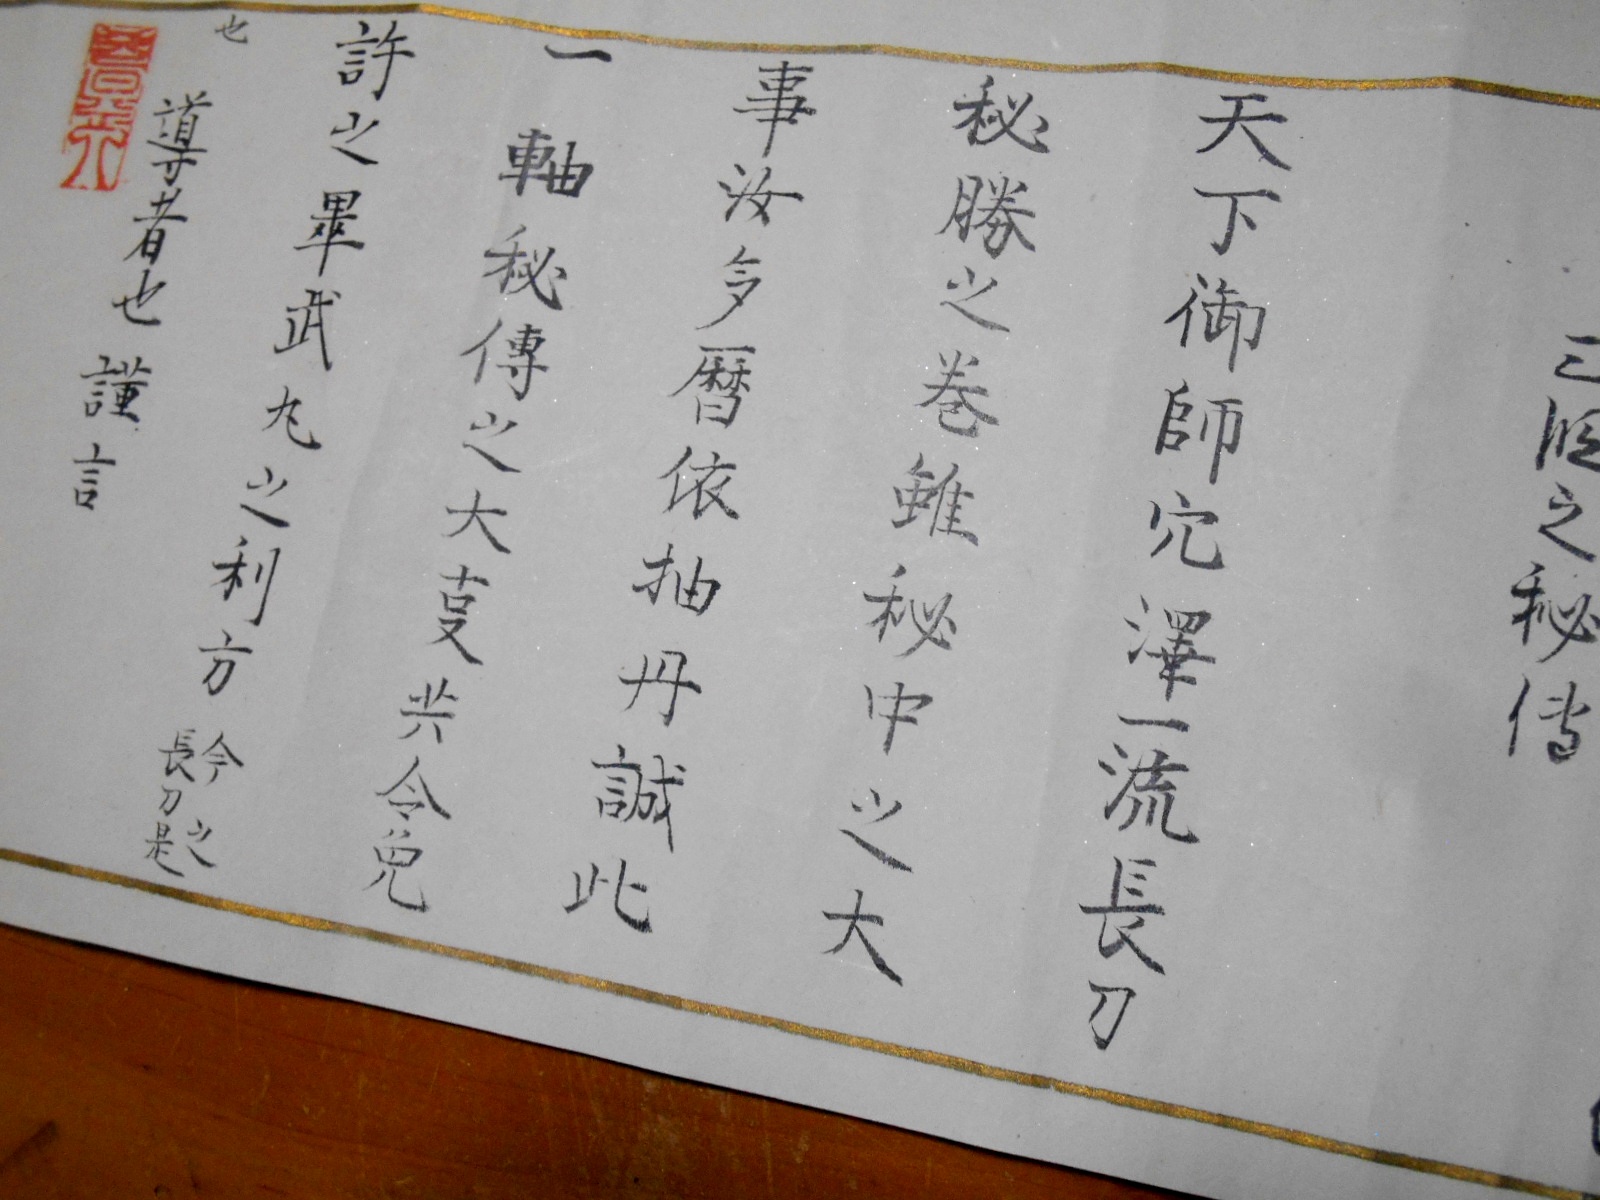 之秘傳
天下御師穴澤一流長刀
秘勝之巻雖秘中之大
事汝多暦依抽丹誠此
一軸秘傳之大事共令免
許之畢武丸之利方今之
長刀是
也
導者也謹言